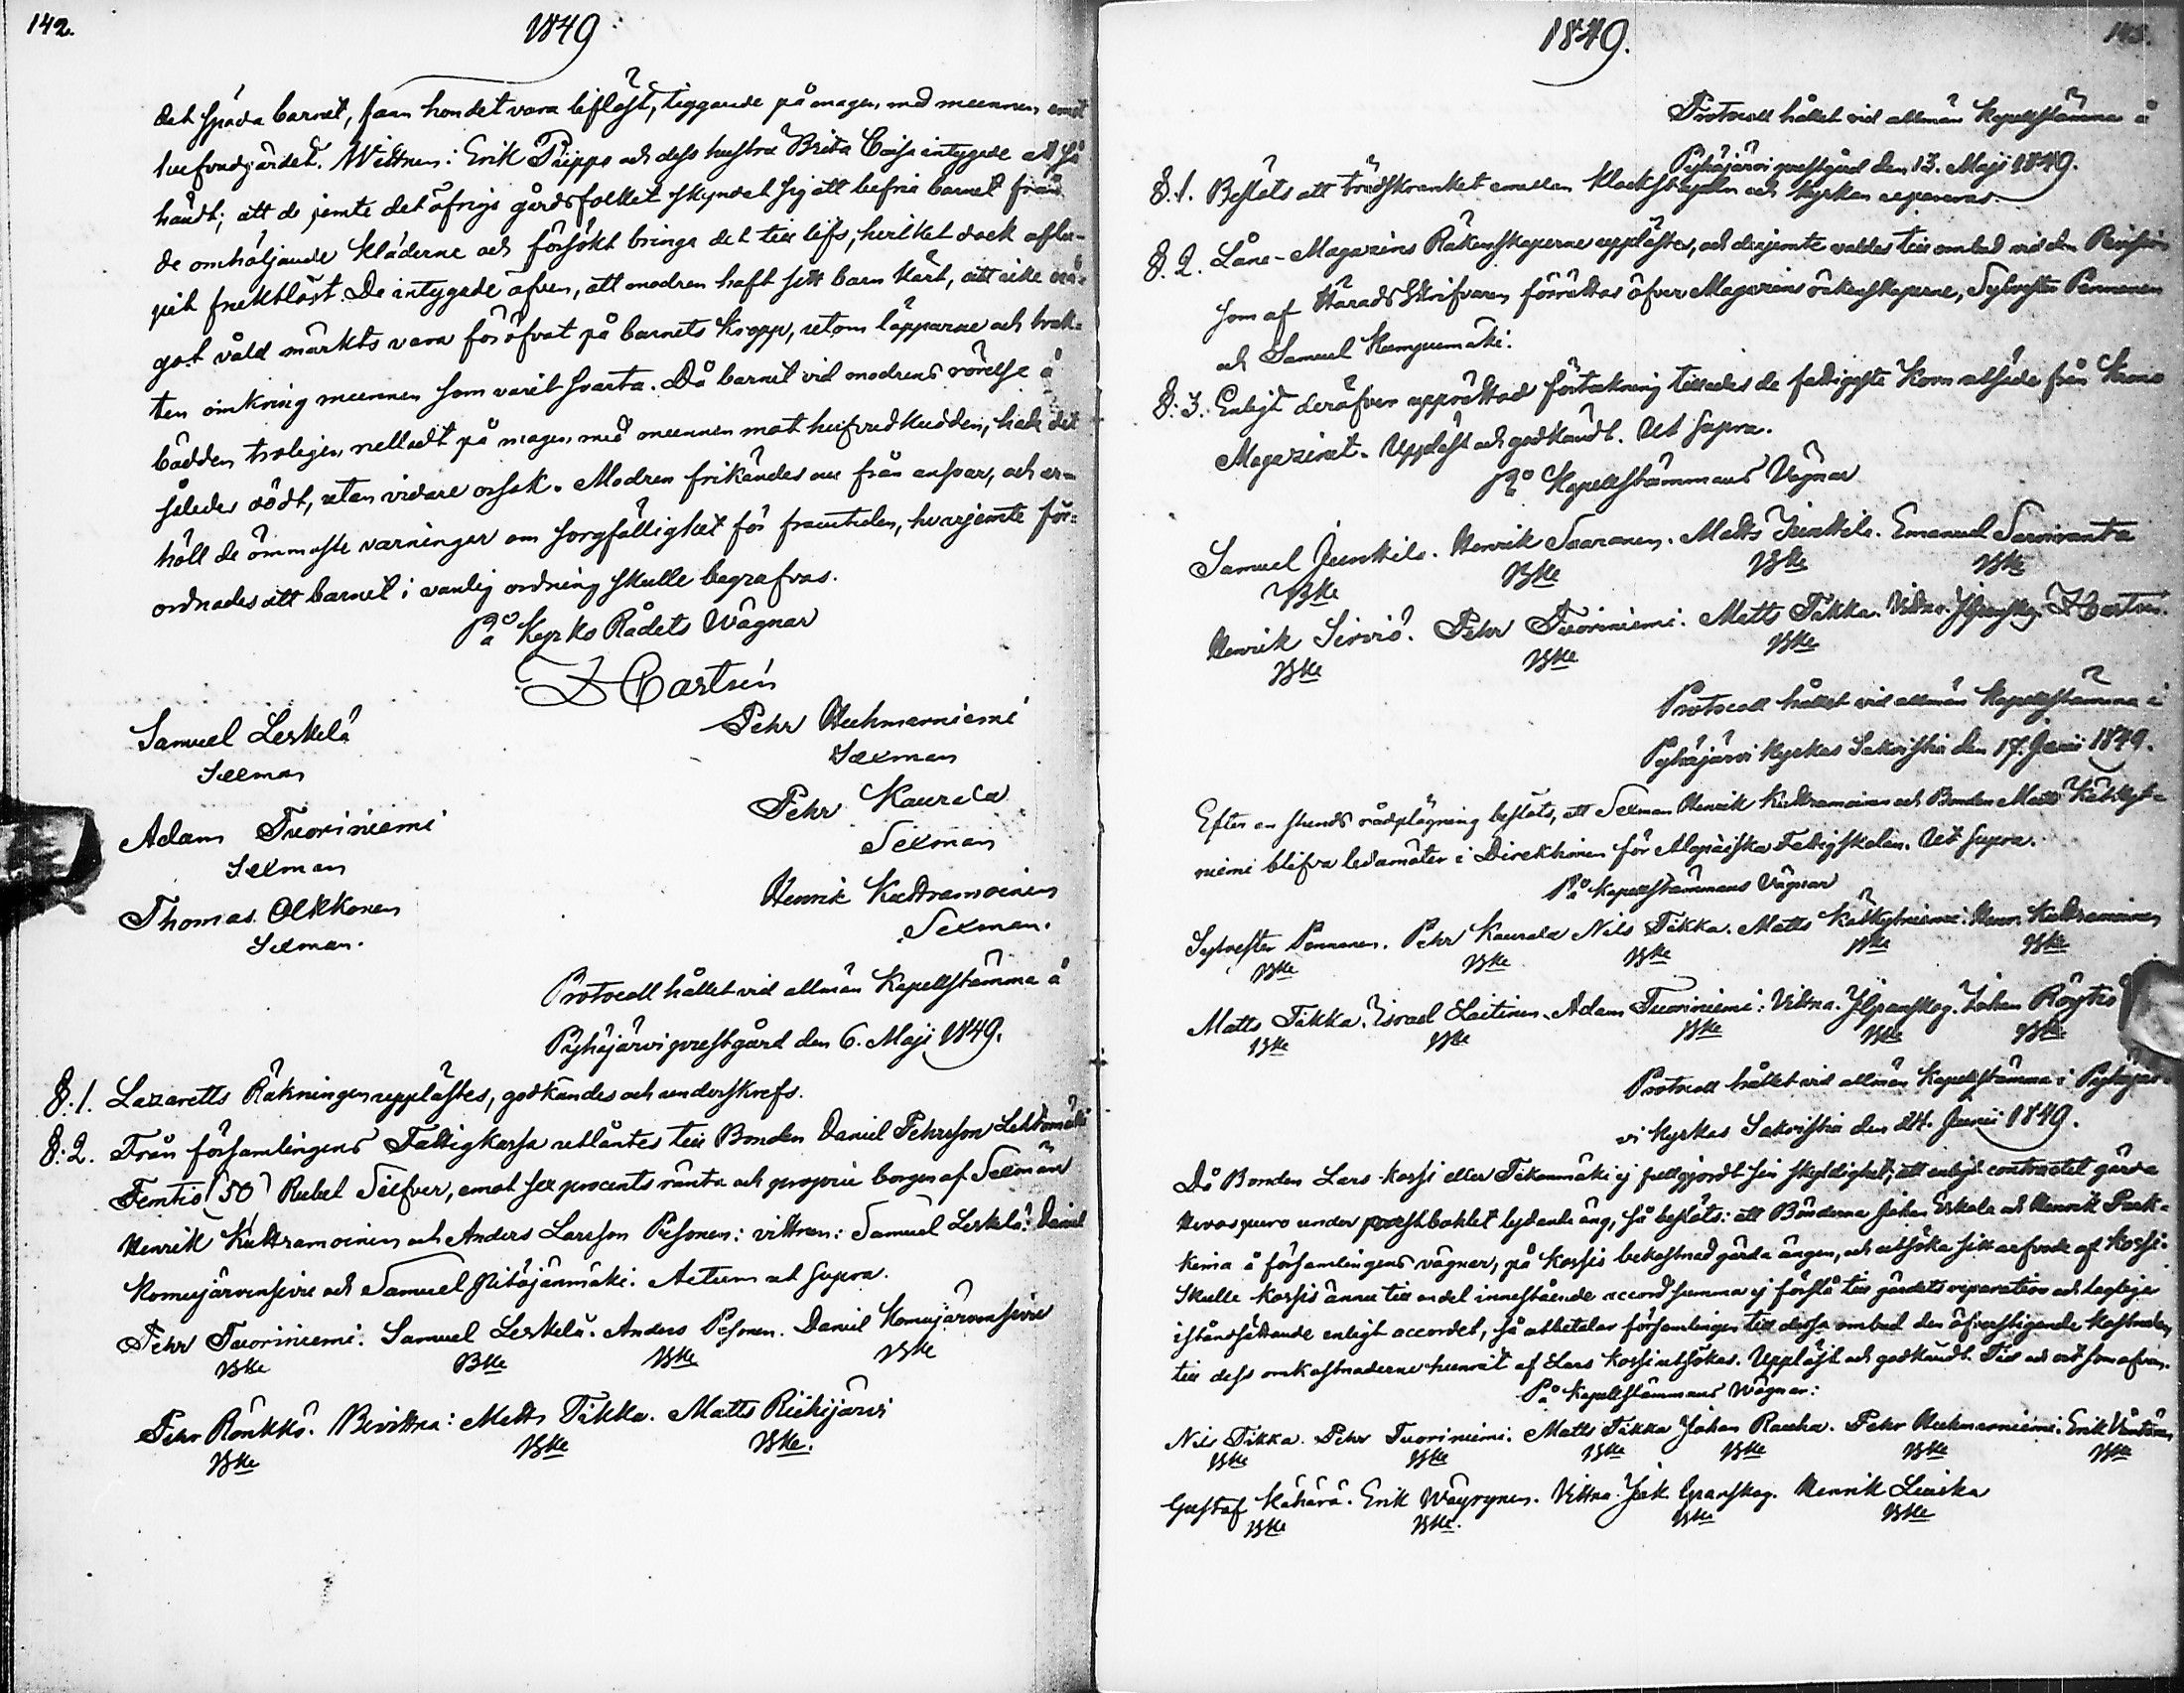 142.
1849.
det späda barnet, fann hon det vara liflöst, liggande på magen, med munnen emot
hufvudgärdet. Wittnen: Erik Piippo och dess hustru Brita Caisa intygade att så
händt; att de jemte det öfriga gårdsfolket skyndat sig att befria barnet från
de omhöljande kläderne och försökt bringa det till lifs, hvilket dock aflu-
pit fruktlöst. De intygade äfven, att modren haft sitt barn kärt, att icke nå-
got våld märkts vara föröfvat på barnets kropp, utom läpparne och trak-
ten omkring munnen som varit svarta. Då barnet vid modrens rörelse å
bädden troligen vältadt på magen med munnen mot hufvudkudden, hade det
således dödt, utan vidare orsak. Modren frikändes nu från ansvar, och er-
höll de ömmaste varningar om sorgfällighet för framtiden, hvarjemte för-
ordnades att barnet i vanlig ordning skulle begrafvas.
På Kyrko Rådets Wägnar
Z Castrén
Samuel Leskelä
Sexman
Pehr Huhmarniemi
Sexman
Adam Tuoriniemi
Sexman
Pehr Kaurala
Sexman
Thomas Olkkonen
Sexman.
Henrik Kuttramoinen
Sexman.
Protocoll hållet vid allmän Kapellstämma å
Pyhäjärvi prestgård den 6. Maji 1849.
§. 1. Lazaretts Räkningen upplästes, godkändes och underskrefs.
§. 2. Från församlingens Fattigkassa utlåntes till Bonden Daniel Pehrsson Lehtomäki
Femtio (50) Rubel Silfver, emot sex procents ränta och proprie borgen af Sexman
Henrik Kuttramoinen och Anders Larsson Pesonen: vittnen: Samuel Leskelä. Daniel
Komujärvensivu och Samuel Pitäjänmäki. Actum ut supra.
Pehr Tuoriniemi. Samuel Leskelä. Anders Pesonen. Daniel Komujärvensivu
Bde Bde Bde Bde
Pehr Rönkkö. Bevittna: Matts Tikka. Matts Riihijärvi
Bde Bde Bde.
1849.
143.
Protocoll hållet vid allmän Kapellstämma å
Pyhäjärvi prestgård den 13. Maji 1849.
§. 1. Beslöts att trädskranket emellan Klockstapeln och Kyrkan repareras.
§. 2. Låne-Magazins Räkenskaperne upplästes, och desjemte valdes till ombud vid den Revision
som af HäradsSkrifvaren förrättas öfver Magazins räkenskaperne, Sylvester Pennanen
och Samuel Kumpumäki.
§: 3. Enligt deröfver upprättad förtekning tillades de fattigaste Korn utsäde från Krono
Magazinet. Uppläst och godkändt. Ut supra.
På Kapellstämmans Vägnar
Samuel Junkkila. Henrik Saaranen. Matts Junkkila. Emanuel Sarviranta
Bde Bde Bde Bde
Henrik Sirviö. Pehr Tuoriniemi. Matts Tikka. Vittna. J Granskog. Z Castrén.
Bde Bde Bde
Protocoll hållet vid allmän Kapellstämma i
Pyhäjärvi Kyrkas Sakristia den 17. Junii 1849.
Efter en stunds rådplägning beslöts, att Sexman Henrik Kuttramoinen och Bonden Matts Kätkyt-
niemi blifva ledamöter i Direktionen för Fattigskolan. Ut supra.
På Kapellstämmans Vägnar
Sylvester Pennanen. Pehr Kaurala Nils Tikka. Matts Kätkytniemi. Henr. Kuttramoinen
Bde Bde Bde Bde Bde
Matts Tikka. Israel Laitinen. Adam Tuoriniemi: Vittna. J Granskog. Johan Röytiö
Bde Bde Bde Bde Bde
Protocoll hållet vid allmän Kapellstämma i Pyhäjär-
vi Kyrkas Sakristia den 24. Junii 1849.
Då Bonden Lars Korsi eller Tikanmäki ej fullgjordt sin skyldighet, att enligt contractet gärda
Hirvaspuro under prestbohlet lydande äng, så beslöts: att Bönderna Johan Eskola och Henrik Park-
kima å församlingens vägnar, på Korsis bekostnad gärda ängen, och utsöka sitt arfvode af Korsi.
Skulle Korsis ännu till en del innestående accord summa ej förslå till gärdets reparation och lagliga
iståndsättande enligt accordet, så utbetalar församlingen till dessa ombud den öfverstigande kostnaden,
till dess omkostnaderne hunnit af Lars Korsi utsökas. Uppläst och godkändt. Tid och ort som ofvan.
På Kapellstämmans Wägnar:
Nils Tikka. Pehr Tuoriniemi. Matts Tikka Johan Rauha. Pehr Huhmarniemi. Erik Väntänen
Bde Bde Bde Bde Bde Bde
Gustaf Kähärä. Erik Wäyrynen. Vittna. Jak. Granskog. Henrik Liuska
Bde Bde. Bde Bde